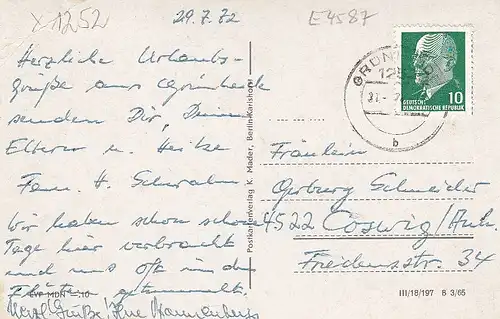 X 1252
29.7.72
E4587
Herzliche Urlaubs-
grüße aus Grünheide
senden Dir, Deinen
Eltern u. Heike
Fam. H.
Wir haben schon schöne
Tage hier verbracht
und uns oft in den
EVP MDN -,10
Herzl. Grüße
Postkartenverlag K. Mader, Berlin-Karlshorst
31.-7.
b
DEUTSCHE
DEMOKRATISCHE REPUBLIK
10
Fräulein
Schneider
4522 Coswig/Anh.
Friedensstr. 34
III/18/197 B 3/65